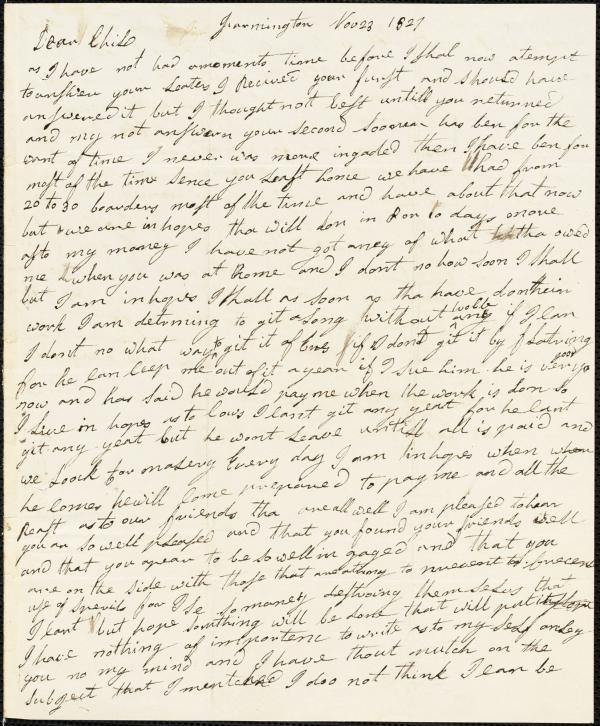 Farmington Nov 23 1827
Dear Chils
as I have not had a moments time before I shal now atempt
to answer your Leaters I Recived your furst and should have
answered it but I thought not best untill you returned
and my not answern your second sooner has ben for the
want of time I never was more ingaded then I have ben for
most of the time sence you Leaft home we have had from
20 to 30 boarders most of the time and have about that now
but we are in hopes tha will don in 8 or 10 days more
as to my money I have not got aney of what tha owed
me when you was at home and I dont no how soon I shall
but I am in hopes I shall as soon as tha have don thein
work I am detirming to git along without if I can
I dont no what way to git it of if I dont git it by
for he can keep me out of it a year if I sue him he is very good
now and has said he would pay me when the work is don so
I Live in hopes as to cows I cant git any yeat for he cant
git any yeat but he wont Leave untill all is paid and
we Look for every day I am in hopes when
he comes he will come prepared to pay me and all the
Reast as to our friends tha are all well I am pleased to hear
you ar so well pleased and that you found your friends well
and that you apear to be so well in gaged and that you
are on the side with those that are to
use of for I Se so maney destroing them selves that
I cant but hope somthing will be don that will put
I have nothing of importenc to write as to my self only
you no my mind and I have thout mutch on the
subject that I mentened I doo not think I can be